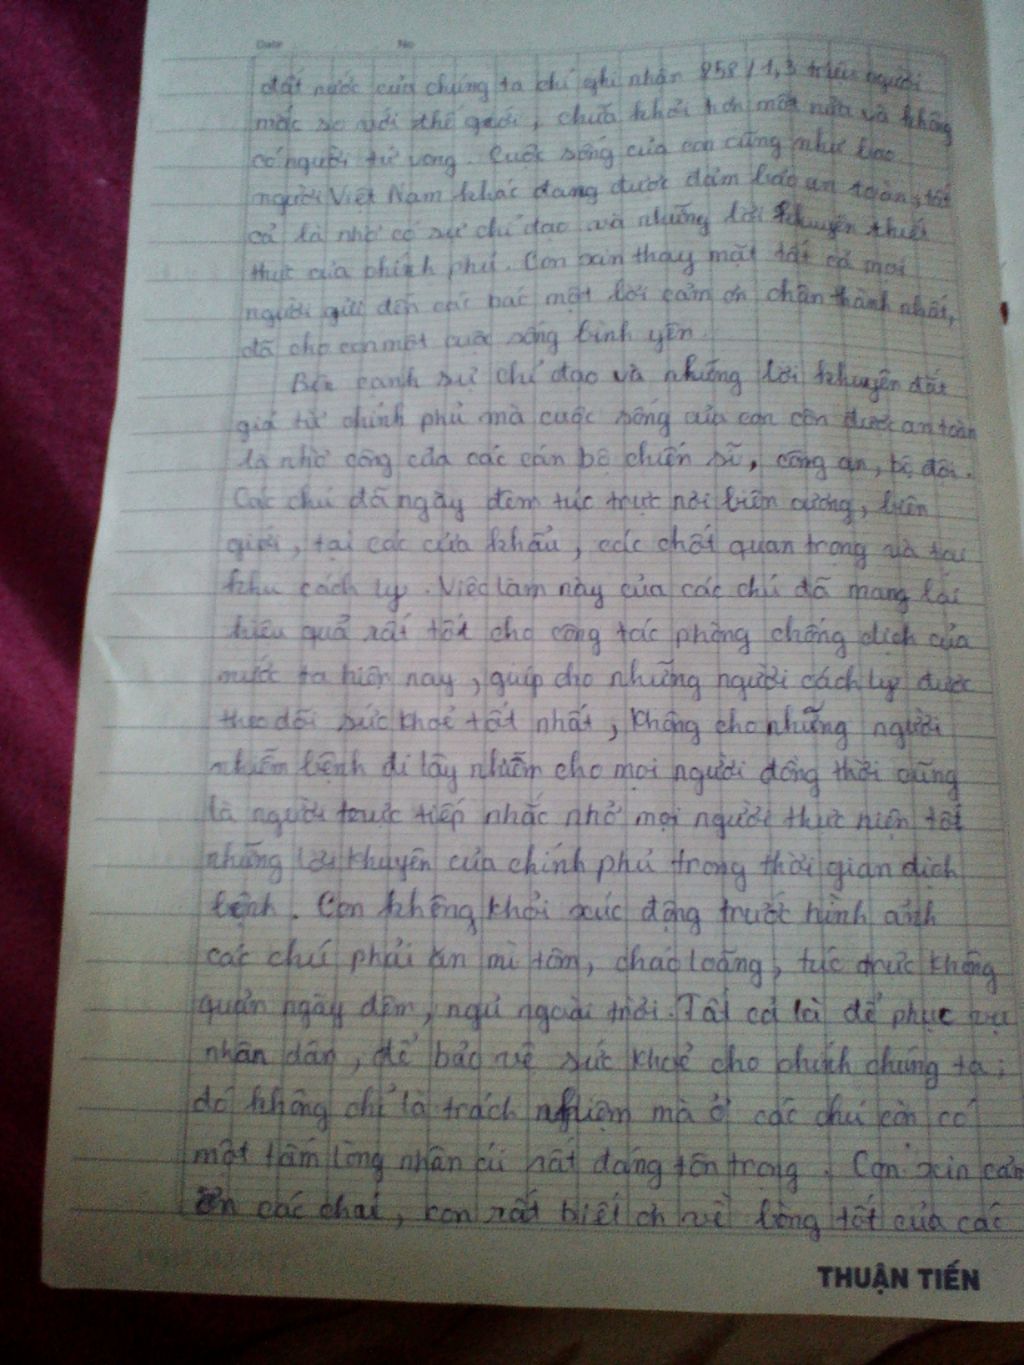 Date No
đất nước của chúng ta chỉ ghi nhận 258 / 1,3 triệu người
mắc so với thế giới, chữa khỏi hơn một nửa và không
có người tử vong. Cuộc sống của con cũng như bao
người Việt Nam khác đang được đảm bảo an toàn, tất
cả là nhờ có sự chỉ đạo và những lời khuyên thiết
thực của chính phủ. Con xin thay mặt tất cả mọi
người gửi đến các bác một lời cảm ơn chân thành nhất,
đã cho con một cuộc sống bình yên.
Bên cạnh sự chỉ đạo và những lời khuyên đắt
giá từ chính phủ mà cuộc sống của con còn được an toàn
là nhờ công của các cán bộ chiến sĩ, công an, bộ đội.
Các chú đã ngày đêm túc trực nơi biên cương, biên
giới, tại các cửa khẩu, các chốt quan trọng và tại
khu cách ly. Việc làm này của các chú đã mang lại
hiệu quả rất tốt cho công tác phòng chống dịch của
nước ta hiện nay, giúp cho những người cách ly được
theo dõi sức khoẻ tốt nhất, không cho những người
nhiễm bệnh đi lây nhiễm cho mọi người đồng thời cũng
là người trực tiếp nhắc nhở mọi người thực hiện tốt
những lời khuyên của chính phủ trong thời gian dịch
bệnh. Con không khỏi xúc động trước hình ảnh
các chú phải ăn mì tôm, cháo loãng, túc trực không
quản ngày đêm, ngủ ngoài trời. Tất cả là để phục vụ
nhân dân, để bảo vệ sức khoẻ cho chính chúng ta;
đó không chỉ là trách nhiệm mà ở các chú còn có
một tấm lòng nhân ái rất đáng tôn trọng. Con xin cảm
ơn các chú, con rất biết ơn về lòng tốt của các
THUẬN TIẾN